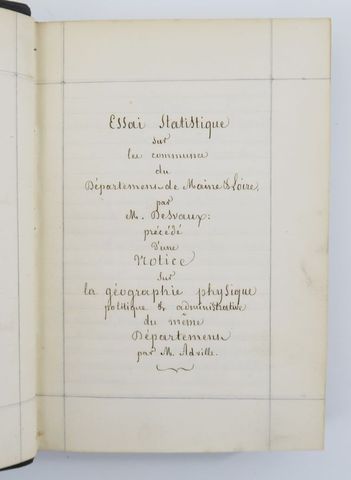 Essai Statistique
sur
les communes
du
Département de Maine & Loire,
par
M. Desvaux:
précédé
d'une
Notice
sur
la géographie physique
politique & administrative
du même
Département
par M. Adville.